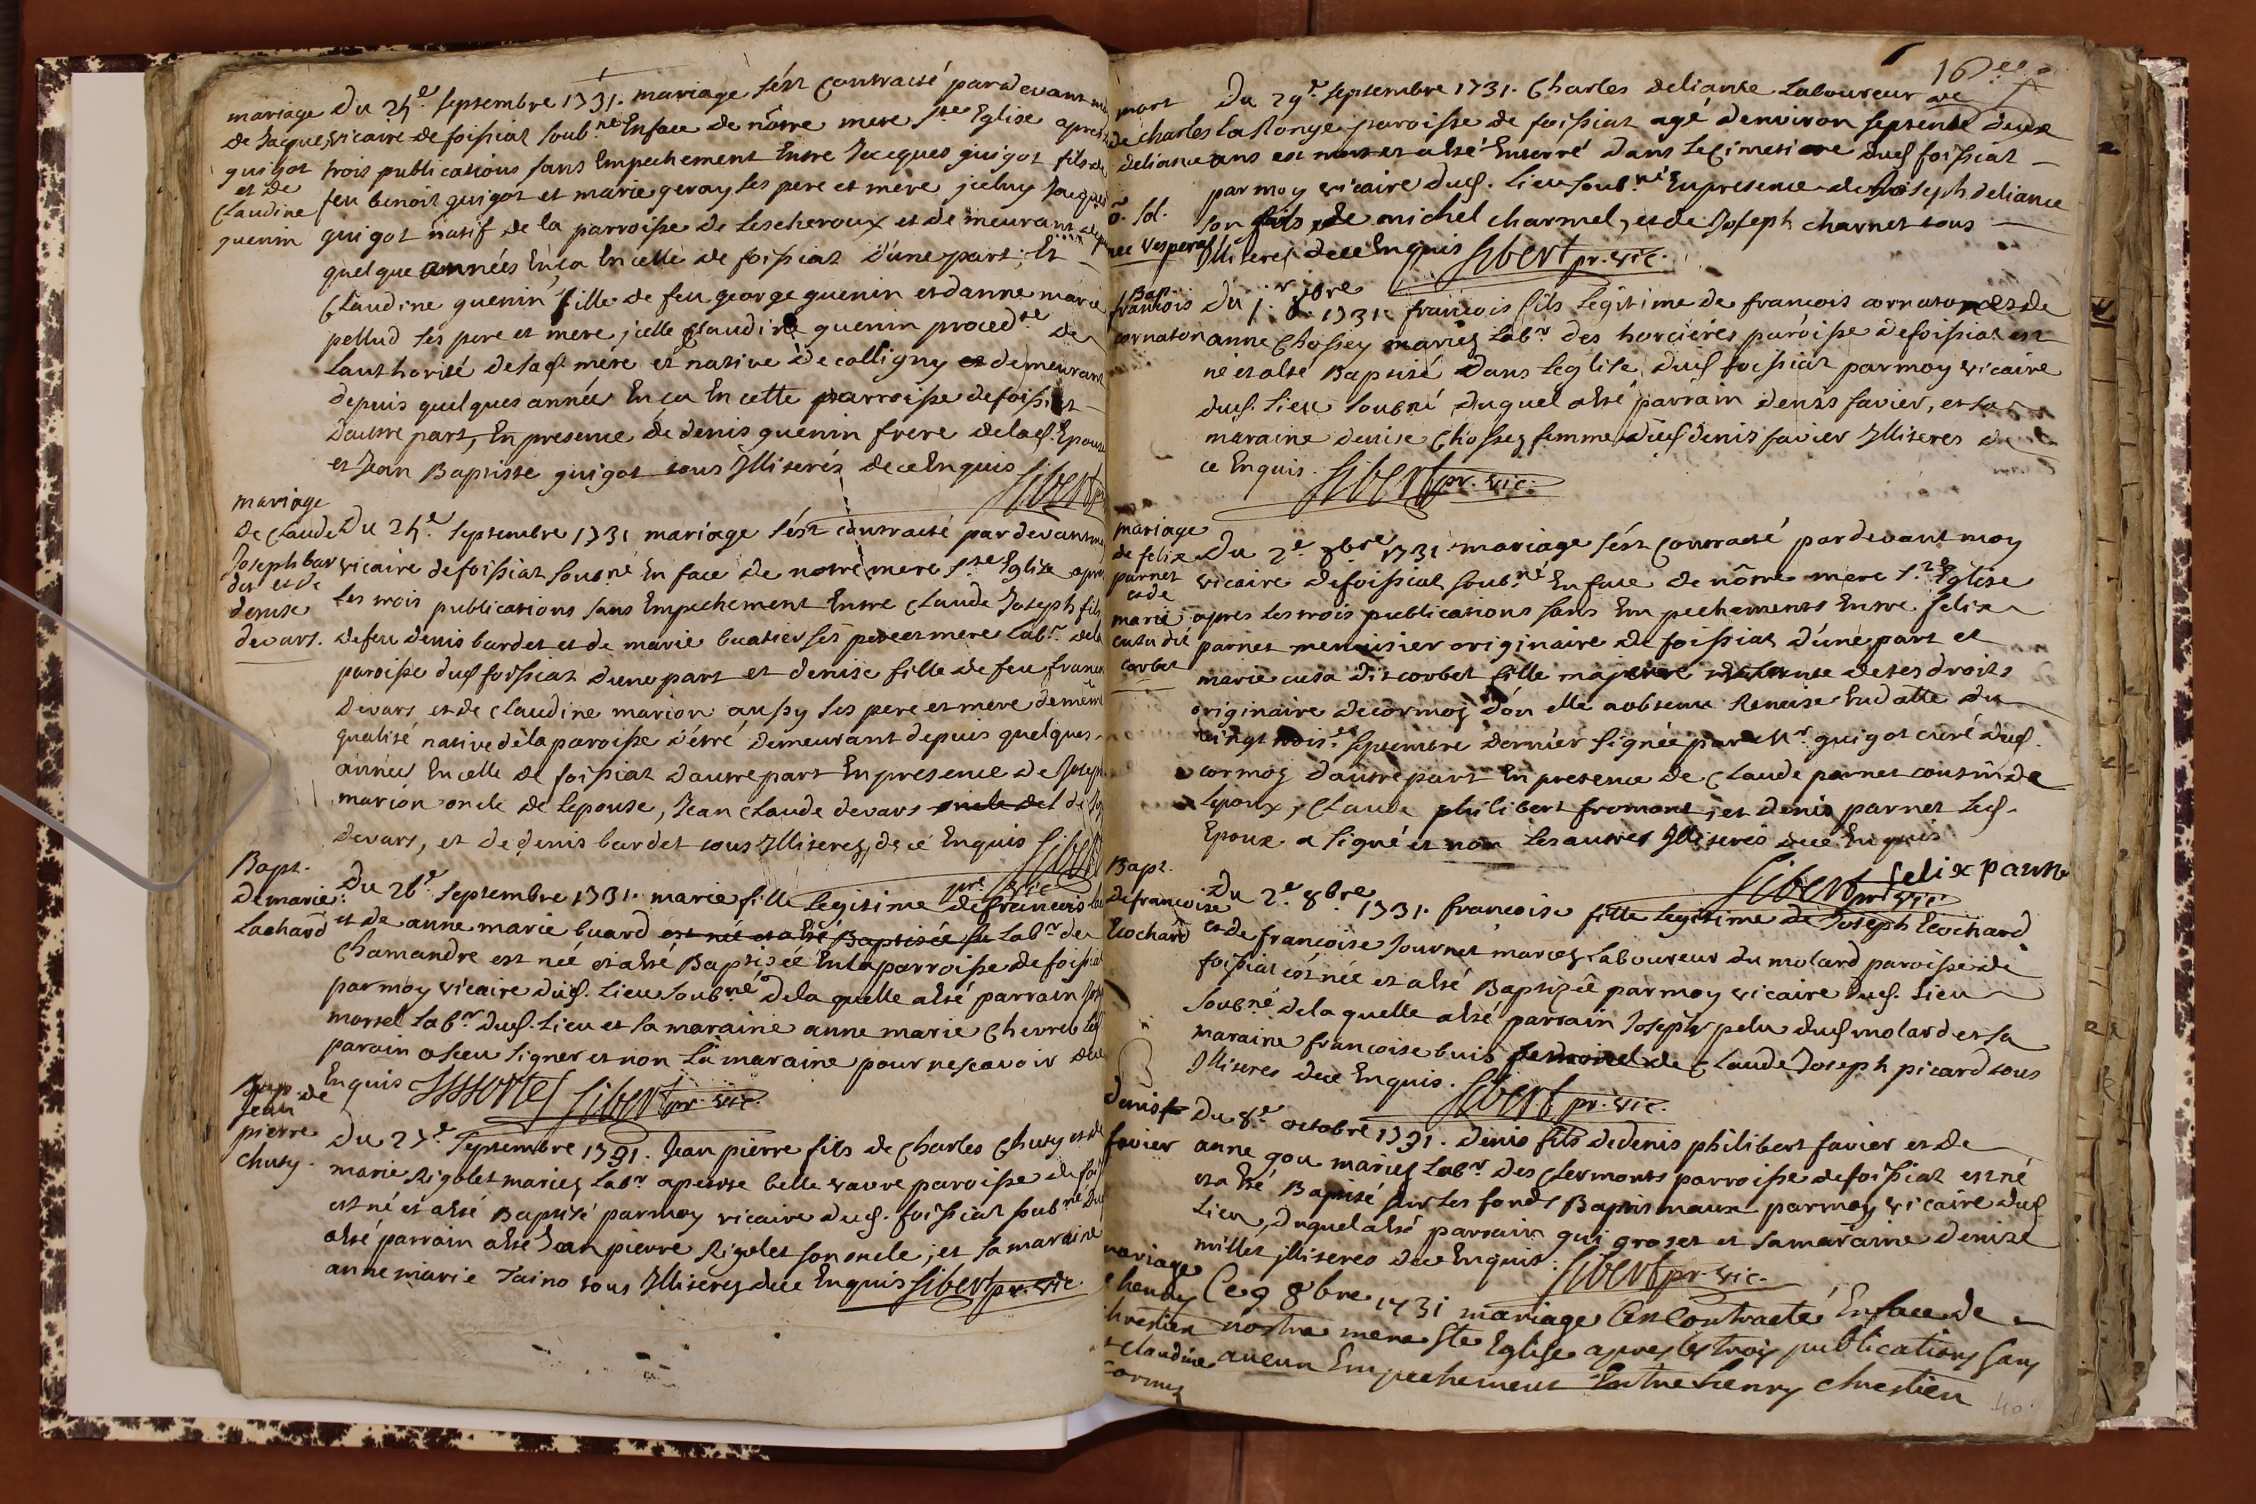 mariage
de Jacque
guigot
et de
Claudine
quenin
Du 25e septembre 1731. mariage sést Contracté pardevant
vicaire de foissiat soubné Enface de nôtre mere ste Eglise apres
trois publications sans Empechement Entre Jacques guigot fils de
feu benoit guigot et marie geray ses pere et mere jceluy Jacques
guigot natif de la parroisse de Lescheroux et demeurant
quelque années En ça En celle de foissiat d'une part; Et
Claudine quenin fille de feu george quenin et danne marie
pellud ses pere et mere jcelle Claudine quenin procedte de
Lauthorité de sad mere et native de colligny et demeurant
depuis quelques année En ça En cette parroisse de foissiat
Dautre part, En presence de denis quenin frere delad Epouse
et Jean Baptiste guigot tous Illiterés de ce Enquis Sibert
mariage
de Claude
Joseph bar
det et de
denise
devars.
Du 25e septembre 1731 mariage sést contracté par devant moy
vicaire de foissiat soubné En face de notre mere ste Eglise apres
les trois publications sans Empechement Entre Claude Joseph fils
de feu denis bardet et de marie buatier ses pere et mere Labr de la
paroisse dud foissiat d'une part et denise fille de feu francois
Devars et de claudine marion aussy ses pere et mere de même
qualité native de la paroisse d'étré demeurant depuis quelques
années En celle de foissiat dautre part En presence de Joseph
marion oncle de Lepouse, Jean Claude devars oncle de
Devars, et de denis bardet tous Illiteres, de cé Enquis Sibert
pr. vic
Bapt.
De marie
Lachard
Du 26e septembre 1731. marie fille Legitime de francois
et de anne marie buard est née et a Eté Baptisée Labr de
Chamandre est née et a Eté Baptisée En la parroisse de foissiat
par moy vicaire dud. Lieu soubné De la quelle a Eté parrain
mortel Labr dud. Lieu et sa maraine anne marie Chevrel Led
parain a sceu signer et non la maraine pour ne sçavoir de ce
Enquis Sibert pr. vic.
Bap. de
Jean
pierre
chuty.
Du 27e septembre 1731. Jean pierre fils de Charles Chuty et de
marie Rigolet mariez Labr a petite belle vavre paroisse de
est né et a Eté Baptisé par moy vicaire dud. foissiat soubné
a Eté parrain a Eté Jean pierre Rigolet son oncle; et sa maraine
anne marie Taino tous Illiterez de ce Enquis Sibert pr. vic
mort
de charles
deliance
Du 29e septembre 1731. Charles deliance Laboureur
La Ronge paroisse de foissiat agé denviron septente deux
ans est mort et a Eté Enterré dans le Cimetiere dud foissiat
par moy vicaire dud. Lieu soubné En presence de Joseph deliance
son fils de michel charmel, et de Joseph charnet tous
Illiteres de ce Enquis Sibert pr. vic.
Bap.
francois
cornaton
Du 1r 8bre 1731. francois fils Legitime de francois cornaton et de
anne Chossey mariez Labr des horcieres paroisse de foissiat est
né et a Eté Baptisé dans Leglise dud foissiat par moy vicaire
dud. Lieu soubné duquel a Eté parrain denis favier, et sa
maraine denise Chossey femme dud denis favier Illiteres de
ce Enquis. Sibert pr. vic.
mariage
de felix
parnet
et de
marie
cusa dit
corbet
Du 2e 8bre 1731. mariage sést contracté par devant moy
vicaire de foissiat soubné En face de nôtre mere ste Eglise
apres Les trois publications sans Empechements Entre felix
parnet menuisier originaire de foissiat d'une part et
marie cusa dit corbet fille majeure de ses droits
originaire de cormoz d'ou elle a obtenu Remise En datte du
vingt trois septembre dernier signée par Mr guigot curé dud.
cormoz d'autre part En presence de Claude parnet cousin de
Lepoux, Claude philibert fromont, et denis parnet Led.
Epoux a signé et non Les autres Illiterés de ce Enquis
felix parne
Sibert pr. vic
Bapt.
de francoise
Ecochard
Du 2e 8bre 1731. francoise fille Legitime de Joseph Ecochard
et de francoise Journet mariez Laboureur du molard paroisse de
foissiat est née et a Eté Baptizée par moy vicaire dud. Lieu
soubné de la quelle a Eté parrain Joseph pelu dud molard et sa
maraine francoise buis de Claude Joseph picard tous
Illiteres de ce Enquis. Sibert pr. vic.
Denis
favier
Du 8e octobre 1731. Denis fils de denis philibert favier et de
anne gou mariez Labr des Clermonts parroisse de foissiat est né
et a Eté Baptisé sur les fonds Baptismaux par moy vicaire dud
Lieu, duquel a Eté parrain guy groset et sa maraine denise
millet Illiteres de ce Enquis. Sibert pr. vic.
mariage
henry
chrestien
et Claudine
Ce 9 8bre 1731 mariage Cest Contracté En face de
nostre mere Ste Eglise apres les trois publications sans
aucun Empechement Entre henry chrestien